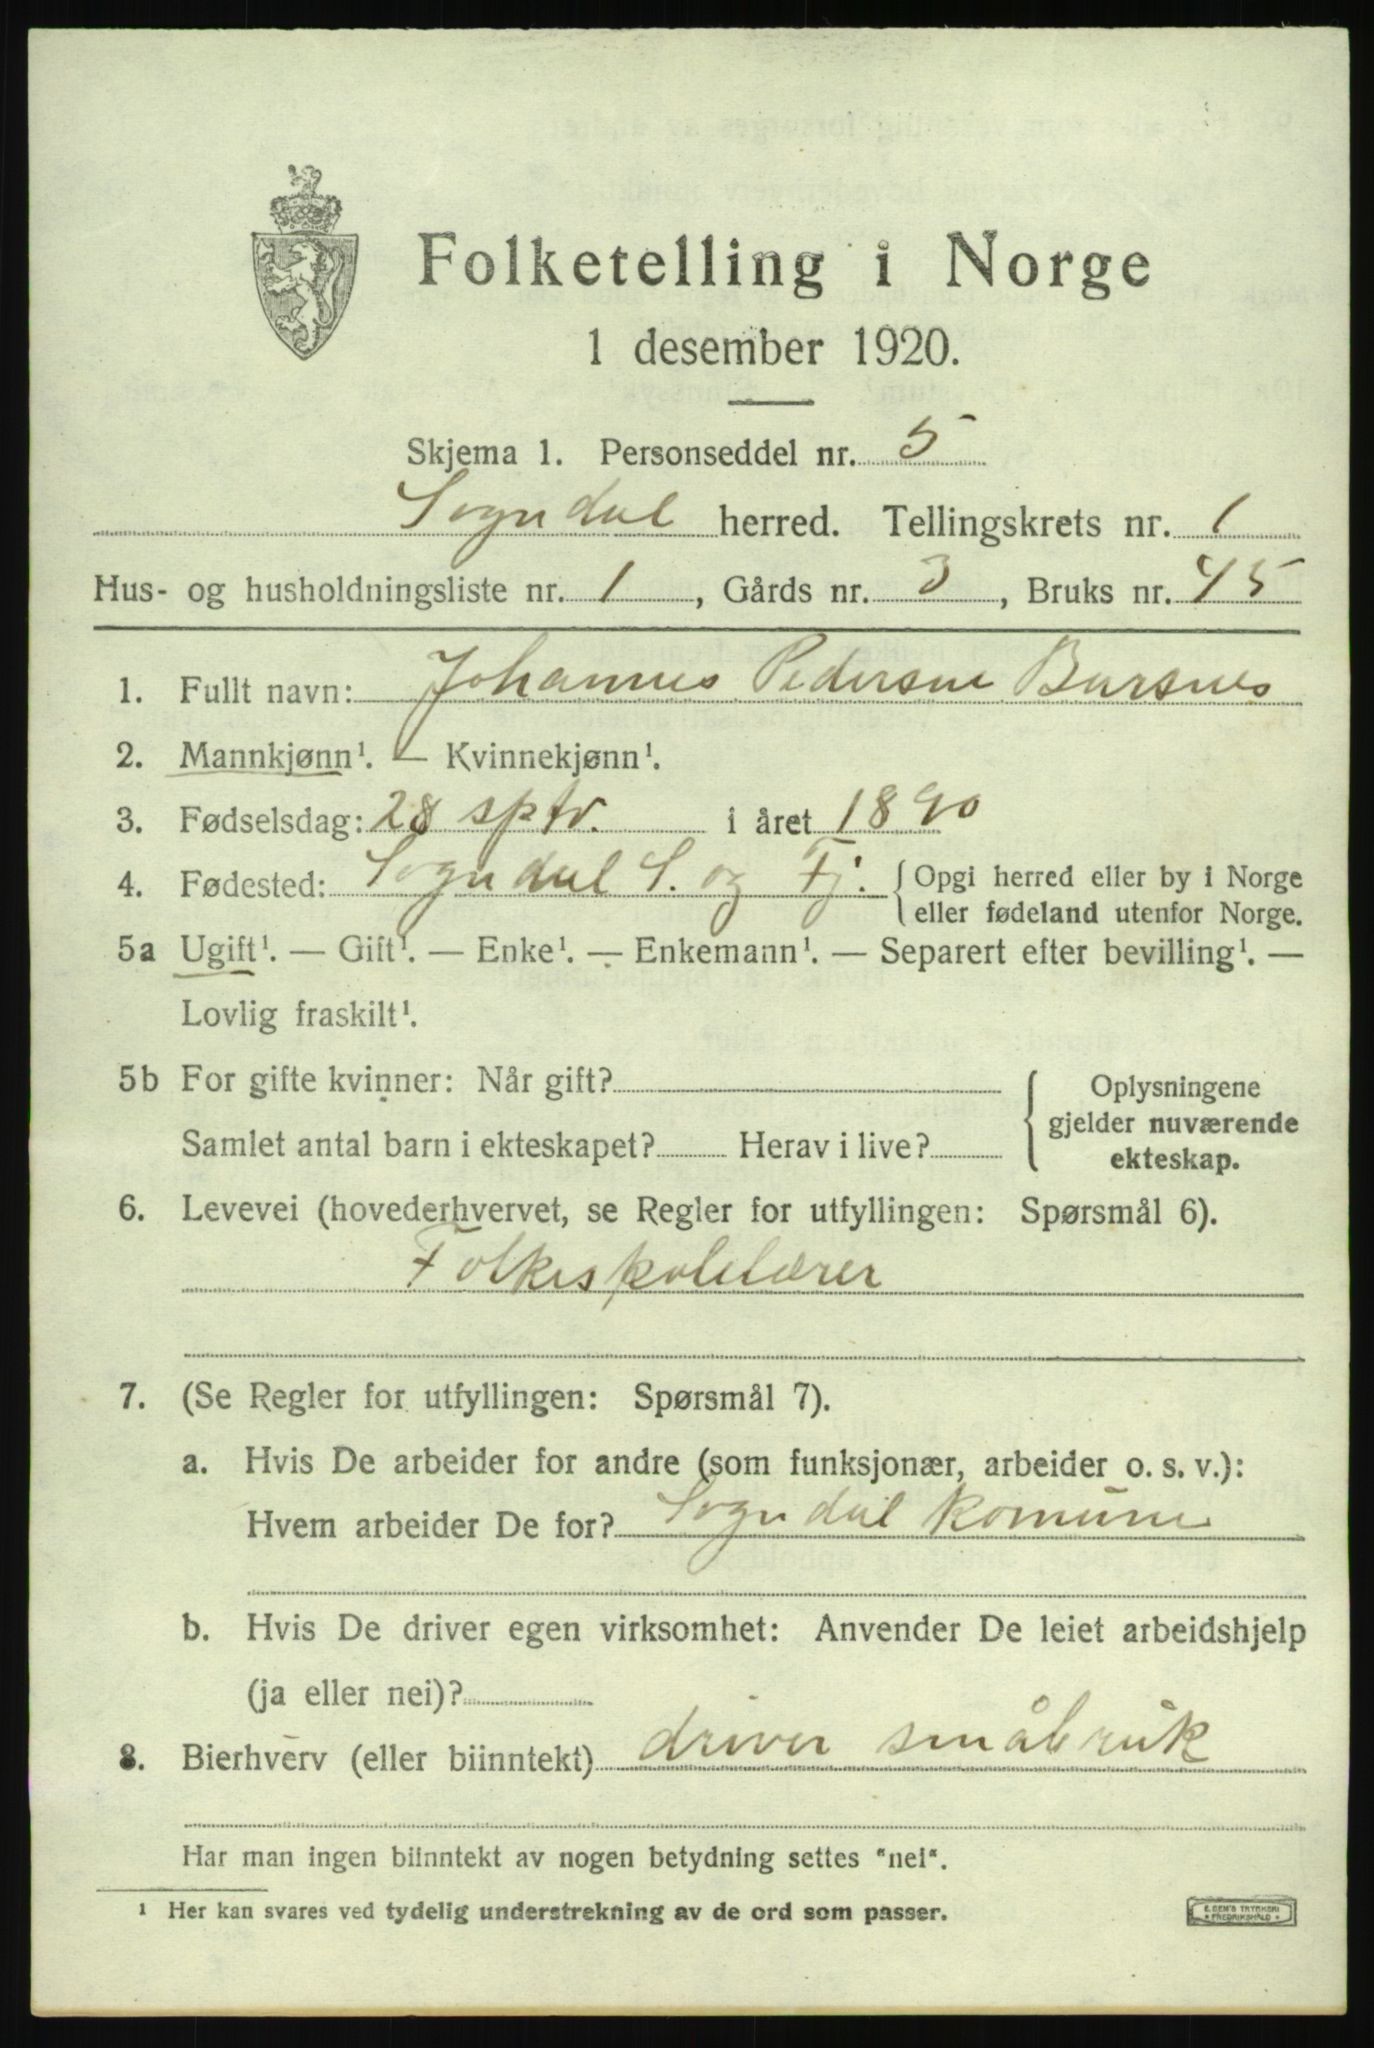 Folketelling i Norge
1 desember 1920.
Skjema 1. Personseddel nr. 5
Sogndal herred. Tellingskrets nr. 1
Hus- og husholdningsliste nr. 1, Gårds nr. 3, Bruks nr. 45
1. Fullt navn: Johannes Pedersen Bursnes
2. Mannkjønn¹. — Kvinnekjønn¹.
3. Fødselsdag: 28 sptr. i året 1890
4. Fødested: Sogndal S. og Fj. { Opgi herred eller by i Norge
eller fødeland utenfor Norge.
5a Ugift¹. — Gift¹. — Enke¹. — Enkemann¹. — Separert efter bevilling¹. —
Lovlig fraskilt¹.
5b For gifte kvinner: Når gift?
Samlet antal barn i ekteskapet? Herav i live?
Oplysningene
gjelder nuværende
ekteskap.
6. Levevei (hovederhvervet, se Regler for utfyllingen: Spørsmål 6).
Folkeskolelærer
7. (Se Regler for utfyllingen: Spørsmål 7).
a. Hvis De arbeider for andre (som funksjonær, arbeider o. s. v.):
Hvem arbeider De for? Sogndal komune
b. Hvis De driver egen virksomhet: Anvender De leiet arbeidshjelp
(ja eller nei)?
8. Bierhverv (eller biinntekt) driver småbruk
Har man ingen biinntekt av nogen betydning settes "nei".
¹ Her kan svares ved tydelig understrekning av de ord som passer.
E. SEM'S TRYKKERI
FREDRIKSHALD